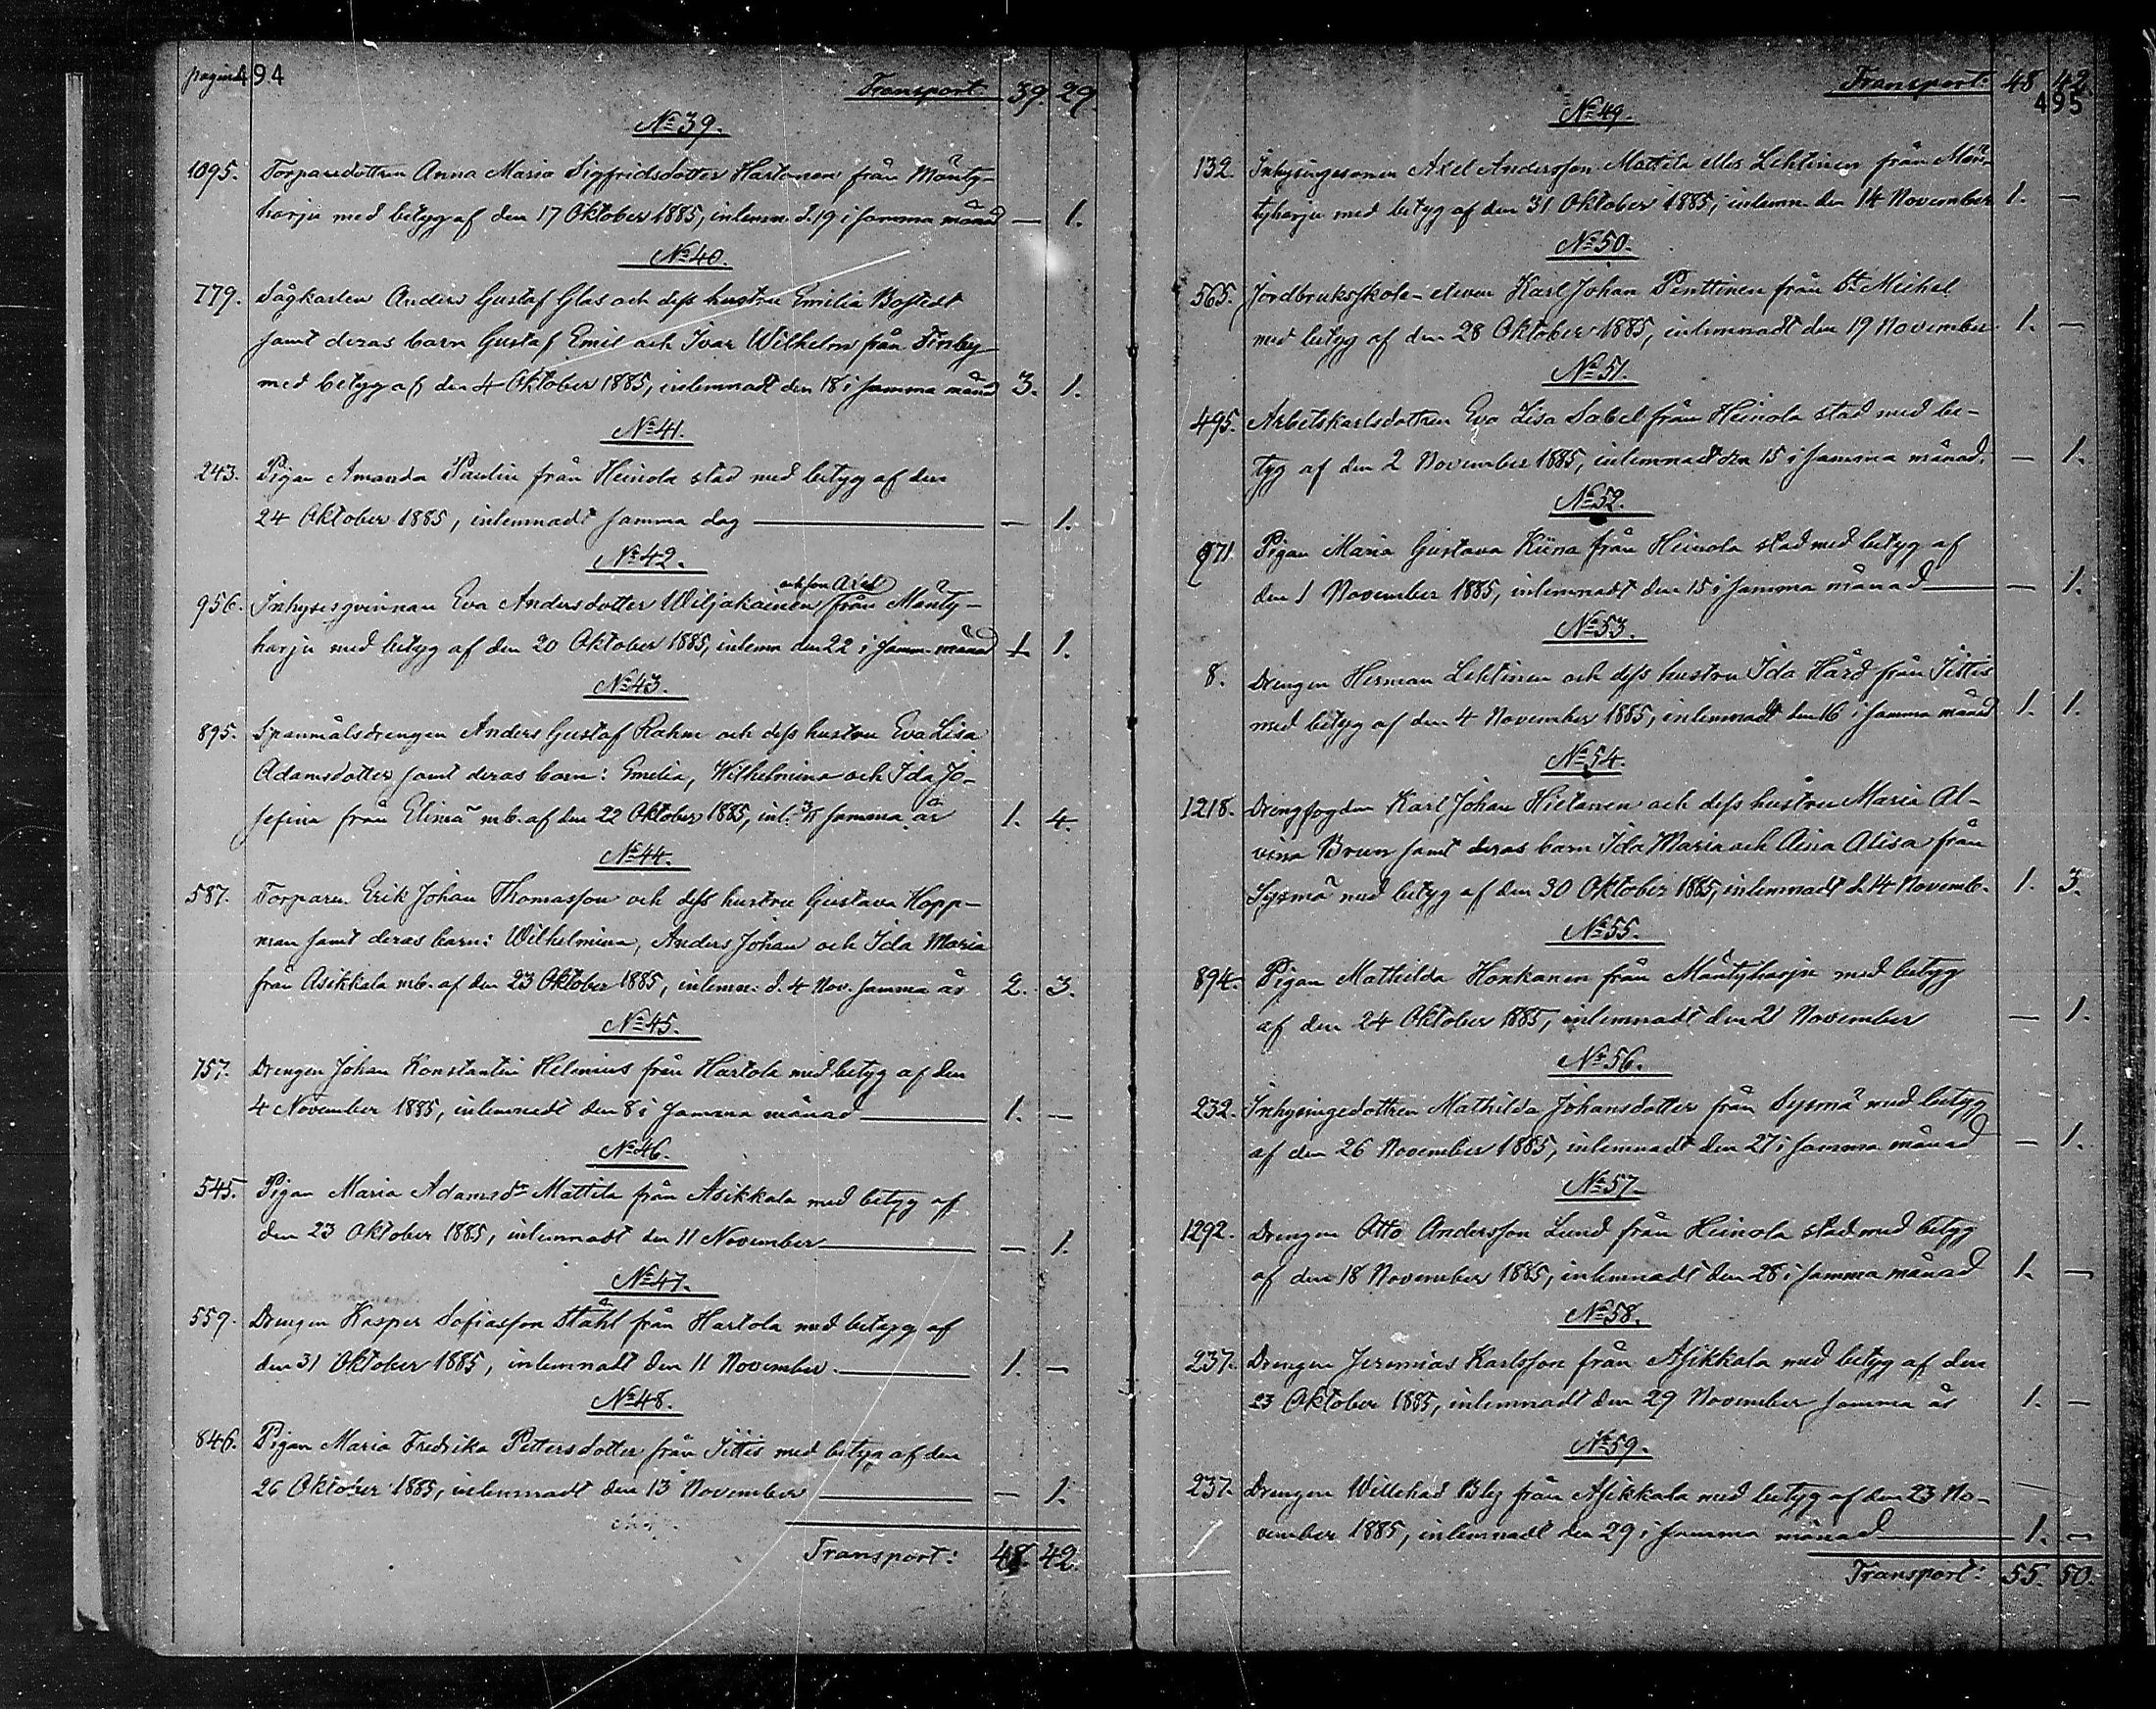 pagina 494
Transport. 39. 29.
No 39.
1095. Torparedottren Anna Maria Sigfridsdotter Hartonen från Mänty-
harju med betyg af den 17 Oktober 1885, inlemn. d. 19 i samma månad — 1.
No 40.
779. Sågkarlen Anders Gustaf Glas och dess hustru Emilia Bostedt
samt deras barn Gustaf Emil och Ivar Wilhelm från Finby
med betyg af den 4 Oktober 1885, inlemnadt den 18 i samma månad 3. 1.
No 41.
243. Pigan Amanda Paulin från Heinola stad med betyg af den
24 Oktober 1885, inlemnadt samma dag — 1.
No 42.
och son Axel
956. Inhysesqvinnan Eva Andersdotter Wiljakainen från Mänty-
harju med betyg af den 20 Oktober 1885, inlemn den 22 i samm. månad 1. 1.
No 43.
895. Spanmålsdrengen Anders Gustaf Rahm och dess hustru Eva Lisa
Adamsdotter samt deras barn: Emelia, Wilhelmina och Ida Jo-
sefina från Elimä mb. af den 22 Oktober 1885, inl. samma år 1. 4.
No 44.
587. Torparen Erik Johan Thomasson och dess hustru Gustava Hopp-
man samt deras barn: Wilhelmina, Anders Johan och Ida Maria
från Asikkala mb. af den 23 Oktober 1885, inlemn. d. 4 Nov. samma år 2. 3.
No 45.
757. Drengen Johan Konstantin Helenius från Hartola med betyg af den
4 November 1885, inlemnadt den 8 i samma månad 1. —
No 46.
545. Pigan Maria Adamsdr Mattila från Asikkala med betyg af
den 23 Oktober 1885, inlemnadt den 11 November — 1.
No 47.
559. Drengen Kasper Sofiasson Ståhl från Hartola med betyg af
den 31 Oktober 1885, inlemnadt den 11 November. 1. —
No 48.
846. Pigan Maria Fredrika Pettersdotter från Jittis med betyg af den
26 Oktober 1885, inlemnadt den 13 November — 1.
Transport: 48. 42.
Transport: 48 42.
495
No 49.
132. Inhysingesonen Axel Andersson Mattila eller Lehtinen från Män-
tyharju med betyg af den 31 Oktober 1885, inlemn den 14 November 1. —
No 50.
565. Jordbruksskole-eleven Karl Johan Penttinen från St Michel
med betyg af den 28 Oktober 1885, inlemnadt den 19 November 1. —
No 51.
495. Arbetskarlsdottren Eva Lisa Sabel från Heinola stad med be-
tyg af den 2 November 1885, inlemnadt den 15 i samma månad. — 1.
No 52.
971. Pigan Maria Gustava Kiina från Heinola stad med betyg af
den 1 November 1885, inlemnadt den 15 i samma månad — 1.
No 53.
8. Drengen Herman Lehtinen och dess hustru Ida Hård från Jittis
med betyg af den 4 November 1885, inlemnadt den 16 i samma månad 1. 1.
No 54.
1218. Drengfogden Karl Johan Hietanen och dess hustru Maria Al-
vina Brun samt deras barn Ida Maria och Aina Alisa från
Sysmä med betyg af den 30 Oktober 1885, inlemnadt d. 14 Novemb. 1. 3.
No 55.
894. Pigan Mathilda Honkanen från Mäntyharju med betyg
af den 24 Oktober 1885, inlemnadt den 21 November — 1.
No 56.
232. Inhysingedottren Mathilda Johansdotter från Sysmä med betyg
af den 26 November 1885, inlemnadt den 27 i samma månad — 1.
No 57.
1292. Drengen Otto Andersson Lund från Heinola stad med betyg
af den 18 November 1885, inlemnadt den 28 i samma månad 1. —
No 58.
237. Drengen Jeremias Karlsson från Asikkala med betyg af den
23 Oktober 1885, inlemnadt den 29 November samma år 1. —
No 59.
237. Drengen Willehad Bly från Asikkala med betyg af den 23 No-
vember 1885, inlemnadt den 29 i samma månad 1. —
Transport: 55. 50.